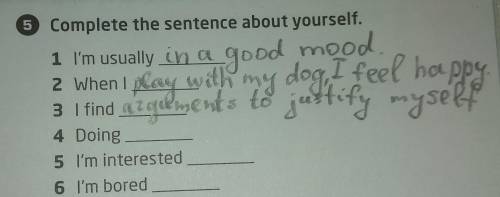 5 Complete the sentence about yourself.
1 I'm usually in a good mood.
2 When I play with my dog, I feel happy.
3 I find arguments to justify myself
4 Doing
5 I'm interested
6 I'm bored